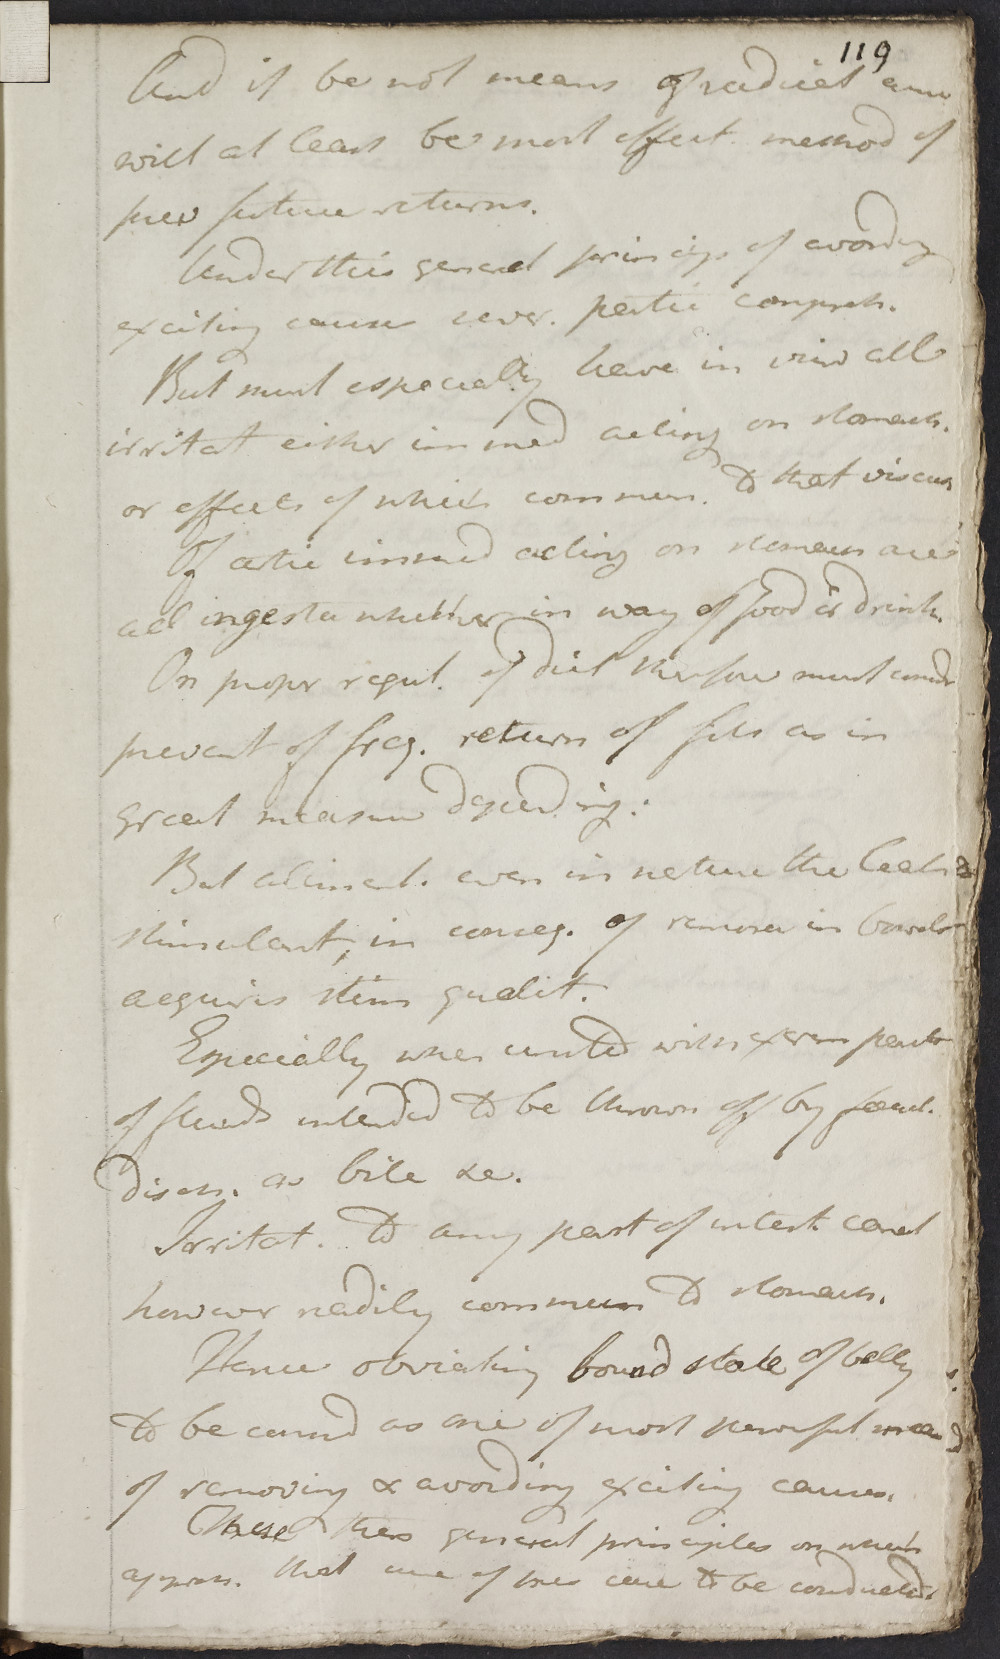 119
And if be not means of radical cure
will at least be most effect. method of
prev future returns.
Under this general princip. of avoiding
exciting causes sever. partic compreh.
But must especially have in view all
irritat either immed acting on stomach.
or effects of which commun. to that viscus
Of artic immed acting on stomach are
all ingesta whether in way of food or drink.
On proper regul. of diet therefore must consid
prevent of freq. return of fits as in
great measure depending.
But aliment. even in nature the least
stimulant, in conseq. of remora in bowels
acquires stim qualit.
Especially when united with excrem parts
of fluids intended to be thrown off by faecal.
disch. as bile &c.
Irritat. to any part of intest. canal
however readily commun to stomach.
Hence obviating bound state of belly
to be consid as one of most powerful means
of removing & avoiding exciting causes.
These then general principles on which
apprehen. that cure of this case to be conducted.